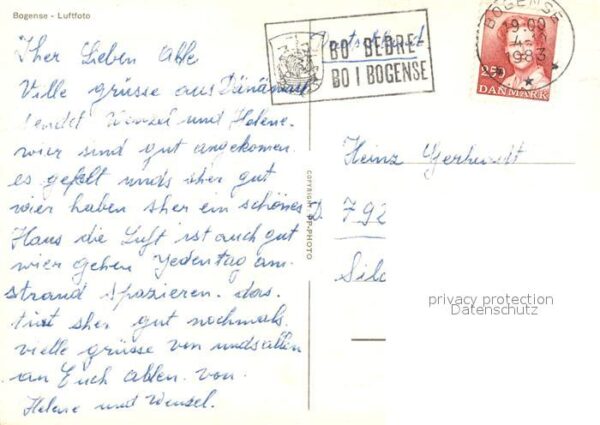 Bogense - Luftfoto
Iher Lieben Alle
Ville grüsse aus Dänämark
sendet Wenzel und Helene.
wier sind gut angekomen
es gefelt unds sher gut
wier haben sher ein schönes
Haus die Luft ist auch gut
wier gehen Jedentag am
strand spazieren. das
tut sher gut nochmals.
vielle grüsse von unds allen
an Euch allen. von
Helene und Wenzel.
COPYRIGHT PP-PHOTO
BO BEDRE
BO I BOGENSE
BOGENSE
19.00
1983
250
DANMARK
Heinz
D 792
privacy protection
Datenschutz